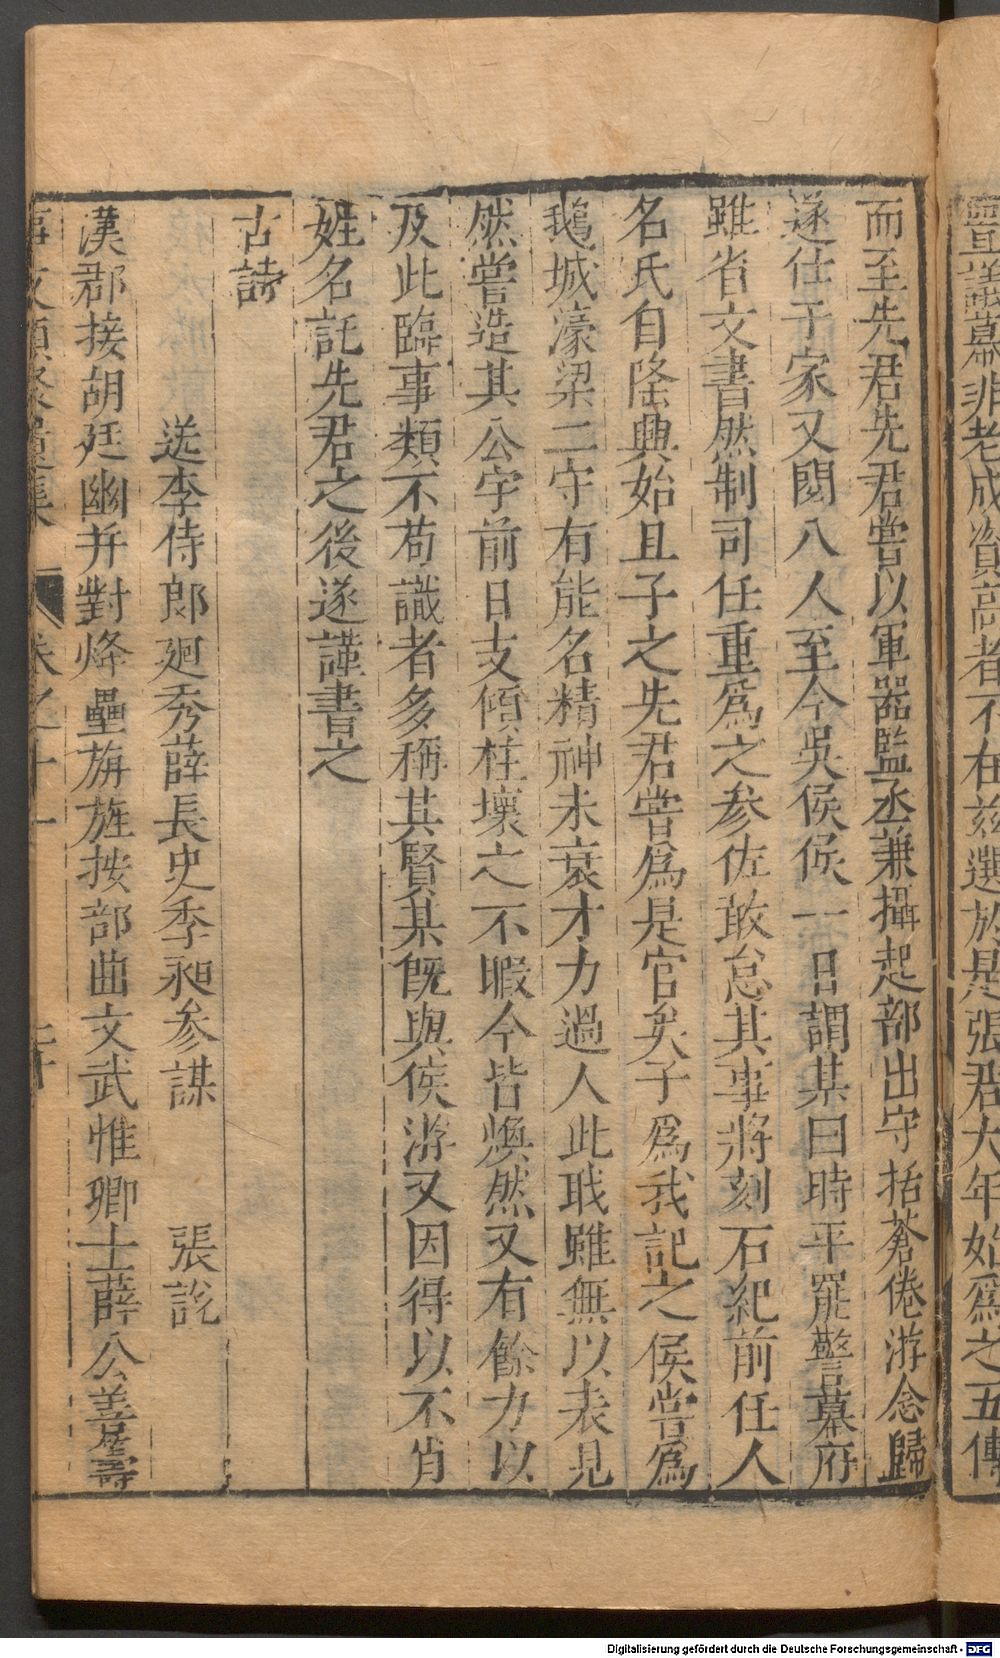 寧宗議薦非老成資高者不在兹選於是張君大年始爲之五傳
而至先君先君嘗以軍器監丞兼攝起部出守括蒼倦游念歸
遂仕于家又閱八人至今吳侯候一日謂某曰時平罷警幕府
雖省文書然制司任重爲之參佐敢怠其事將刻石紀前任人
名氏自隆興始且子之先君嘗爲是官矣子爲我記之侯嘗爲
鵝城濠梁二守有能名精神未衰才力過人此職雖無以表見
然嘗造其公宇前日支傾柱壞之不暇今皆煥然又有餘力以
及此臨事類不苟識者多稱其賢某既與侯游又因得以不肖
姓名託先君之後遂謹書之
古詩
送李侍郎迥秀薛長史季昶參謀 張說
漢郡接胡廷幽并對烽壘旃旌按部曲文武惟卿士薛公善籌
事文類聚遺集 卷之十一 二十
Digitalisierung gefördert durch die Deutsche Forschungsgemeinschaft - DFG